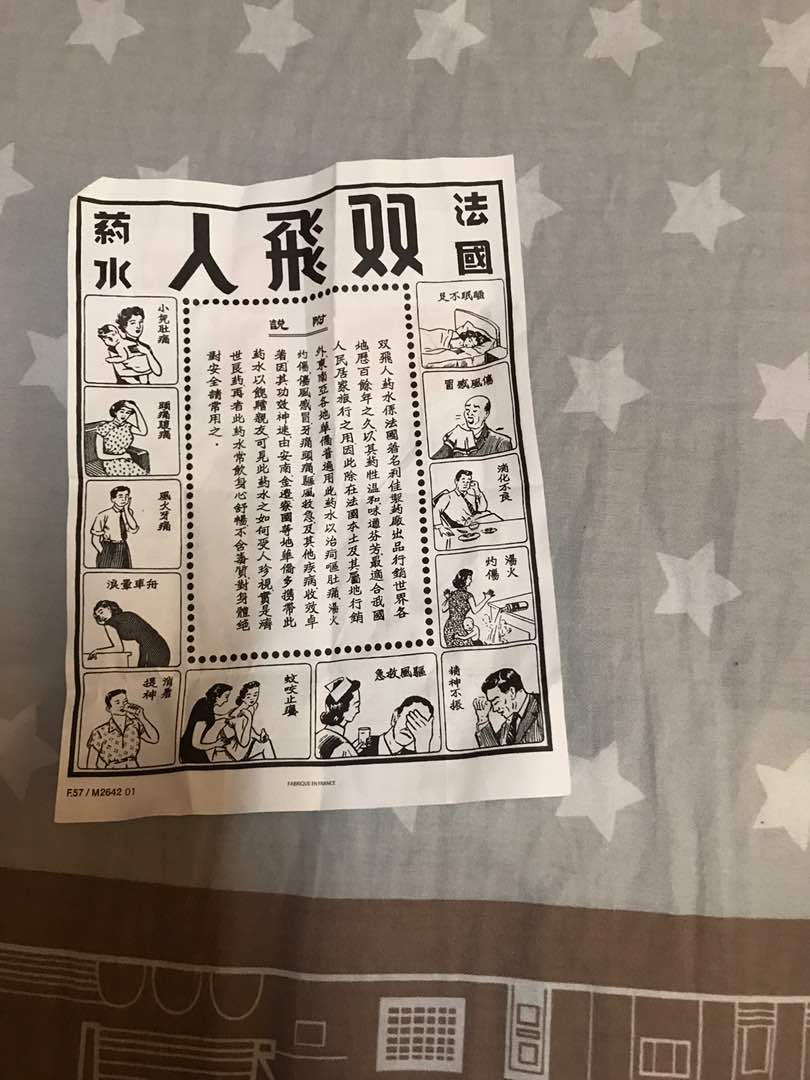 法國
双飛人
葯水
附說
双飛人葯水係法國著名利佳製葯廠出品行銷世界各
地歷百餘年之久以其葯性溫和味道芬芳最適合我國
人民居家旅行之用因此除在法國本土及其屬地行銷
外東南亞各地華僑普遍用此葯水以治痾嘔肚痛湯火
灼傷傷風感冒牙痛頭痛驅風救急及其他疾病收效卓
著因其功效神速由安南金邊寮國等地華僑多携帶此
葯水以餽贈親友可見此葯水之如何受人珍視實是濟
世良葯再者此葯水常飲身心舒暢不含毒質對身體絕
對安全請常用之．
睡眠不足
傷風感冒
消化不良
湯火灼傷
精神不振
驅風救急
蚊咬止癢
消暑提神
舟車暈浪
風火牙痛
頭痛腹痛
小兒肚痛
F.57 / M2642 01
FABRIQUE EN FRANCE